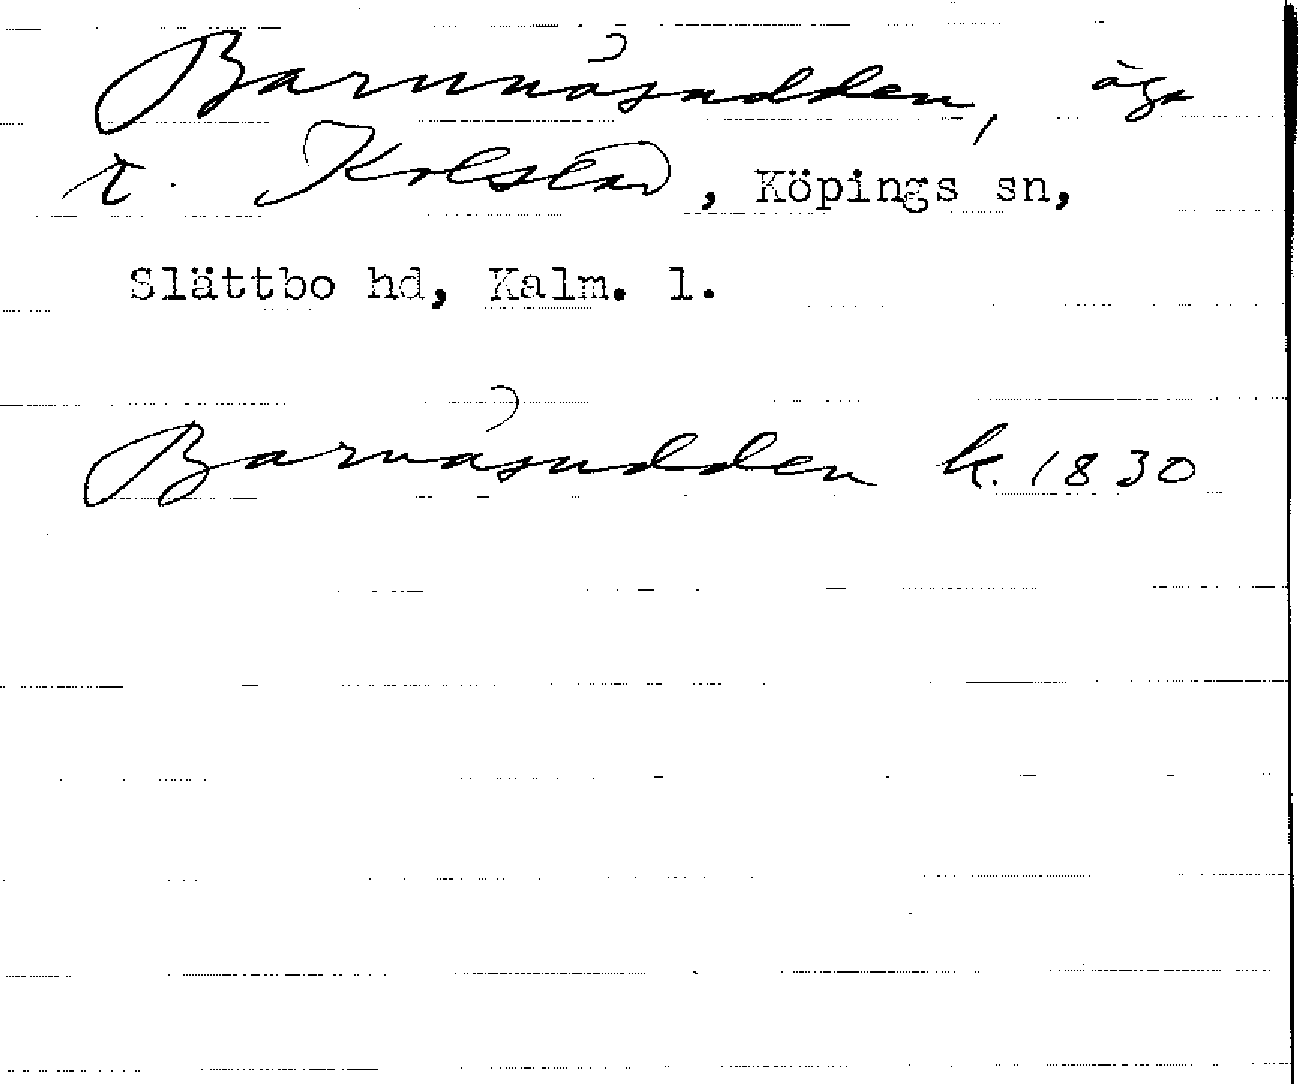 Barnnåsudden, äga
t. Kolstad, Köpings sn,
Slättbo hd, Kalm. l.
Barnåsudden k. 1830